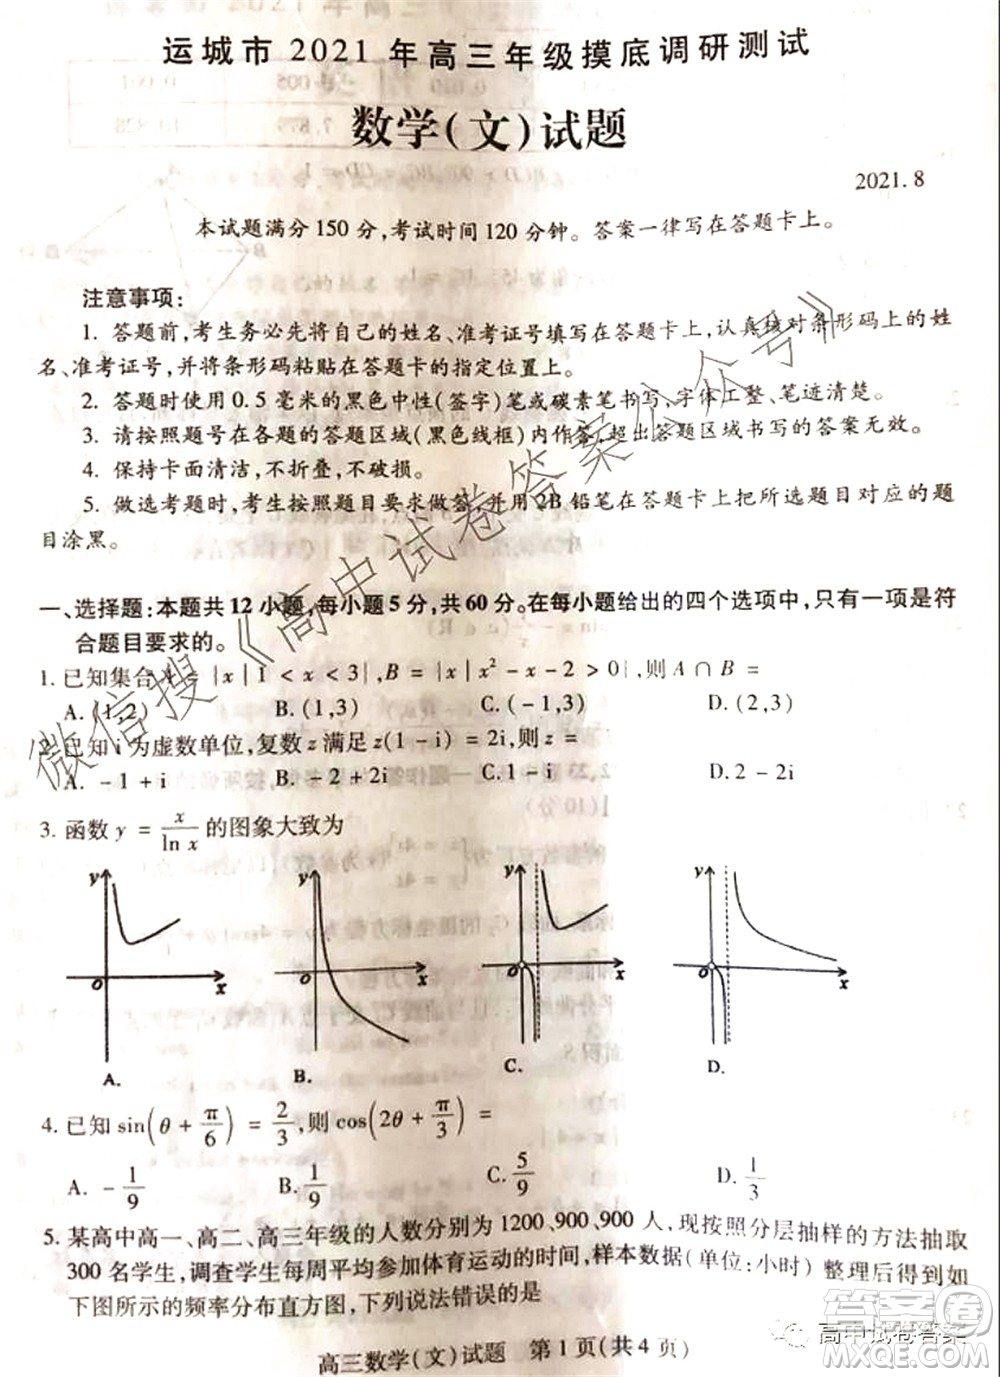 运城市2021年高三年级摸底调研测试
数学(文)试题
2021.8
本试题满分150分,考试时间120分钟。答案一律写在答题卡上。
注意事项:
1. 答题前,考生务必先将自己的姓名、准考证号填写在答题卡上,认真核对条形码上的姓
名、准考证号,并将条形码粘贴在答题卡的指定位置上。
2. 答题时使用0.5毫米的黑色中性(签字)笔或碳素笔书写,字体工整、笔迹清楚。
3. 请按照题号在各题的答题区域(黑色线框)内作答,超出答题区域书写的答案无效。
4. 保持卡面清洁,不折叠,不破损。
5. 做选考题时,考生按照题目要求做答,并用2B铅笔在答题卡上把所选题目对应的题
目涂黑。
一、选择题:本题共12小题,每小题5分,共60分。在每小题给出的四个选项中,只有一项是符
合题目要求的。
1. 已知集合A = {x | 1 < x < 3}, B = {x | x² - x - 2 > 0},则A ∩ B =
A. (1,2) B. (1,3) C. (-1,3) D. (2,3)
2. 已知i为虚数单位,复数z满足z(1 - i) = 2i,则z =
A. -1 + i B. -2 + 2i C. 1 - i D. 2 - 2i
3. 函数y = x/ln x的图象大致为
y y y y
O x O x O x O x
A. B. C. D.
4. 已知sin(θ + π/6) = 2/3,则cos(2θ + π/3) =
A. -1/9 B. 1/9 C. 5/9 D. 1/3
5. 某高中高一、高二、高三年级的人数分别为1200、900、900人,现按照分层抽样的方法抽取
300名学生,调查学生每周平均参加体育运动的时间,样本数据(单位:小时)整理后得到如
下图所示的频率分布直方图,下列说法错误的是
高三数学(文)试题 第1页(共4页)
微信搜《高中试卷答案公众号》
高中试卷答案
答案卷
MXQE.COM